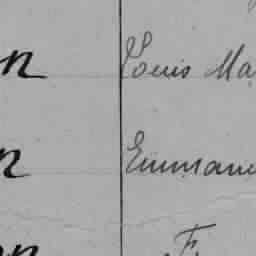 n Louis Ma
n Emmanu
n F